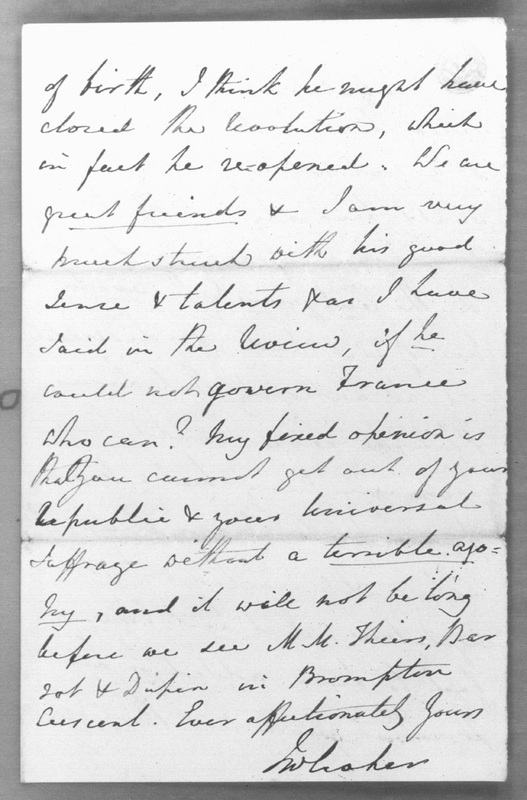 of birth, I think he might have
closed the Revolution, which
in fact he re-opened. We are
great friends & I am very
much struck with his good
sense & talents & as I have
said in the Review, if he
could not govern France
who can? My fixed opinion is
that you cannot get out of your
Republic & your Universal
Suffrage without a terrible ago=
ny, and it will not be long
before we see M.M. Thiers, Bar
rot & Dupin in Brompton
Crescent. Ever affectionately Yours
JWCroker